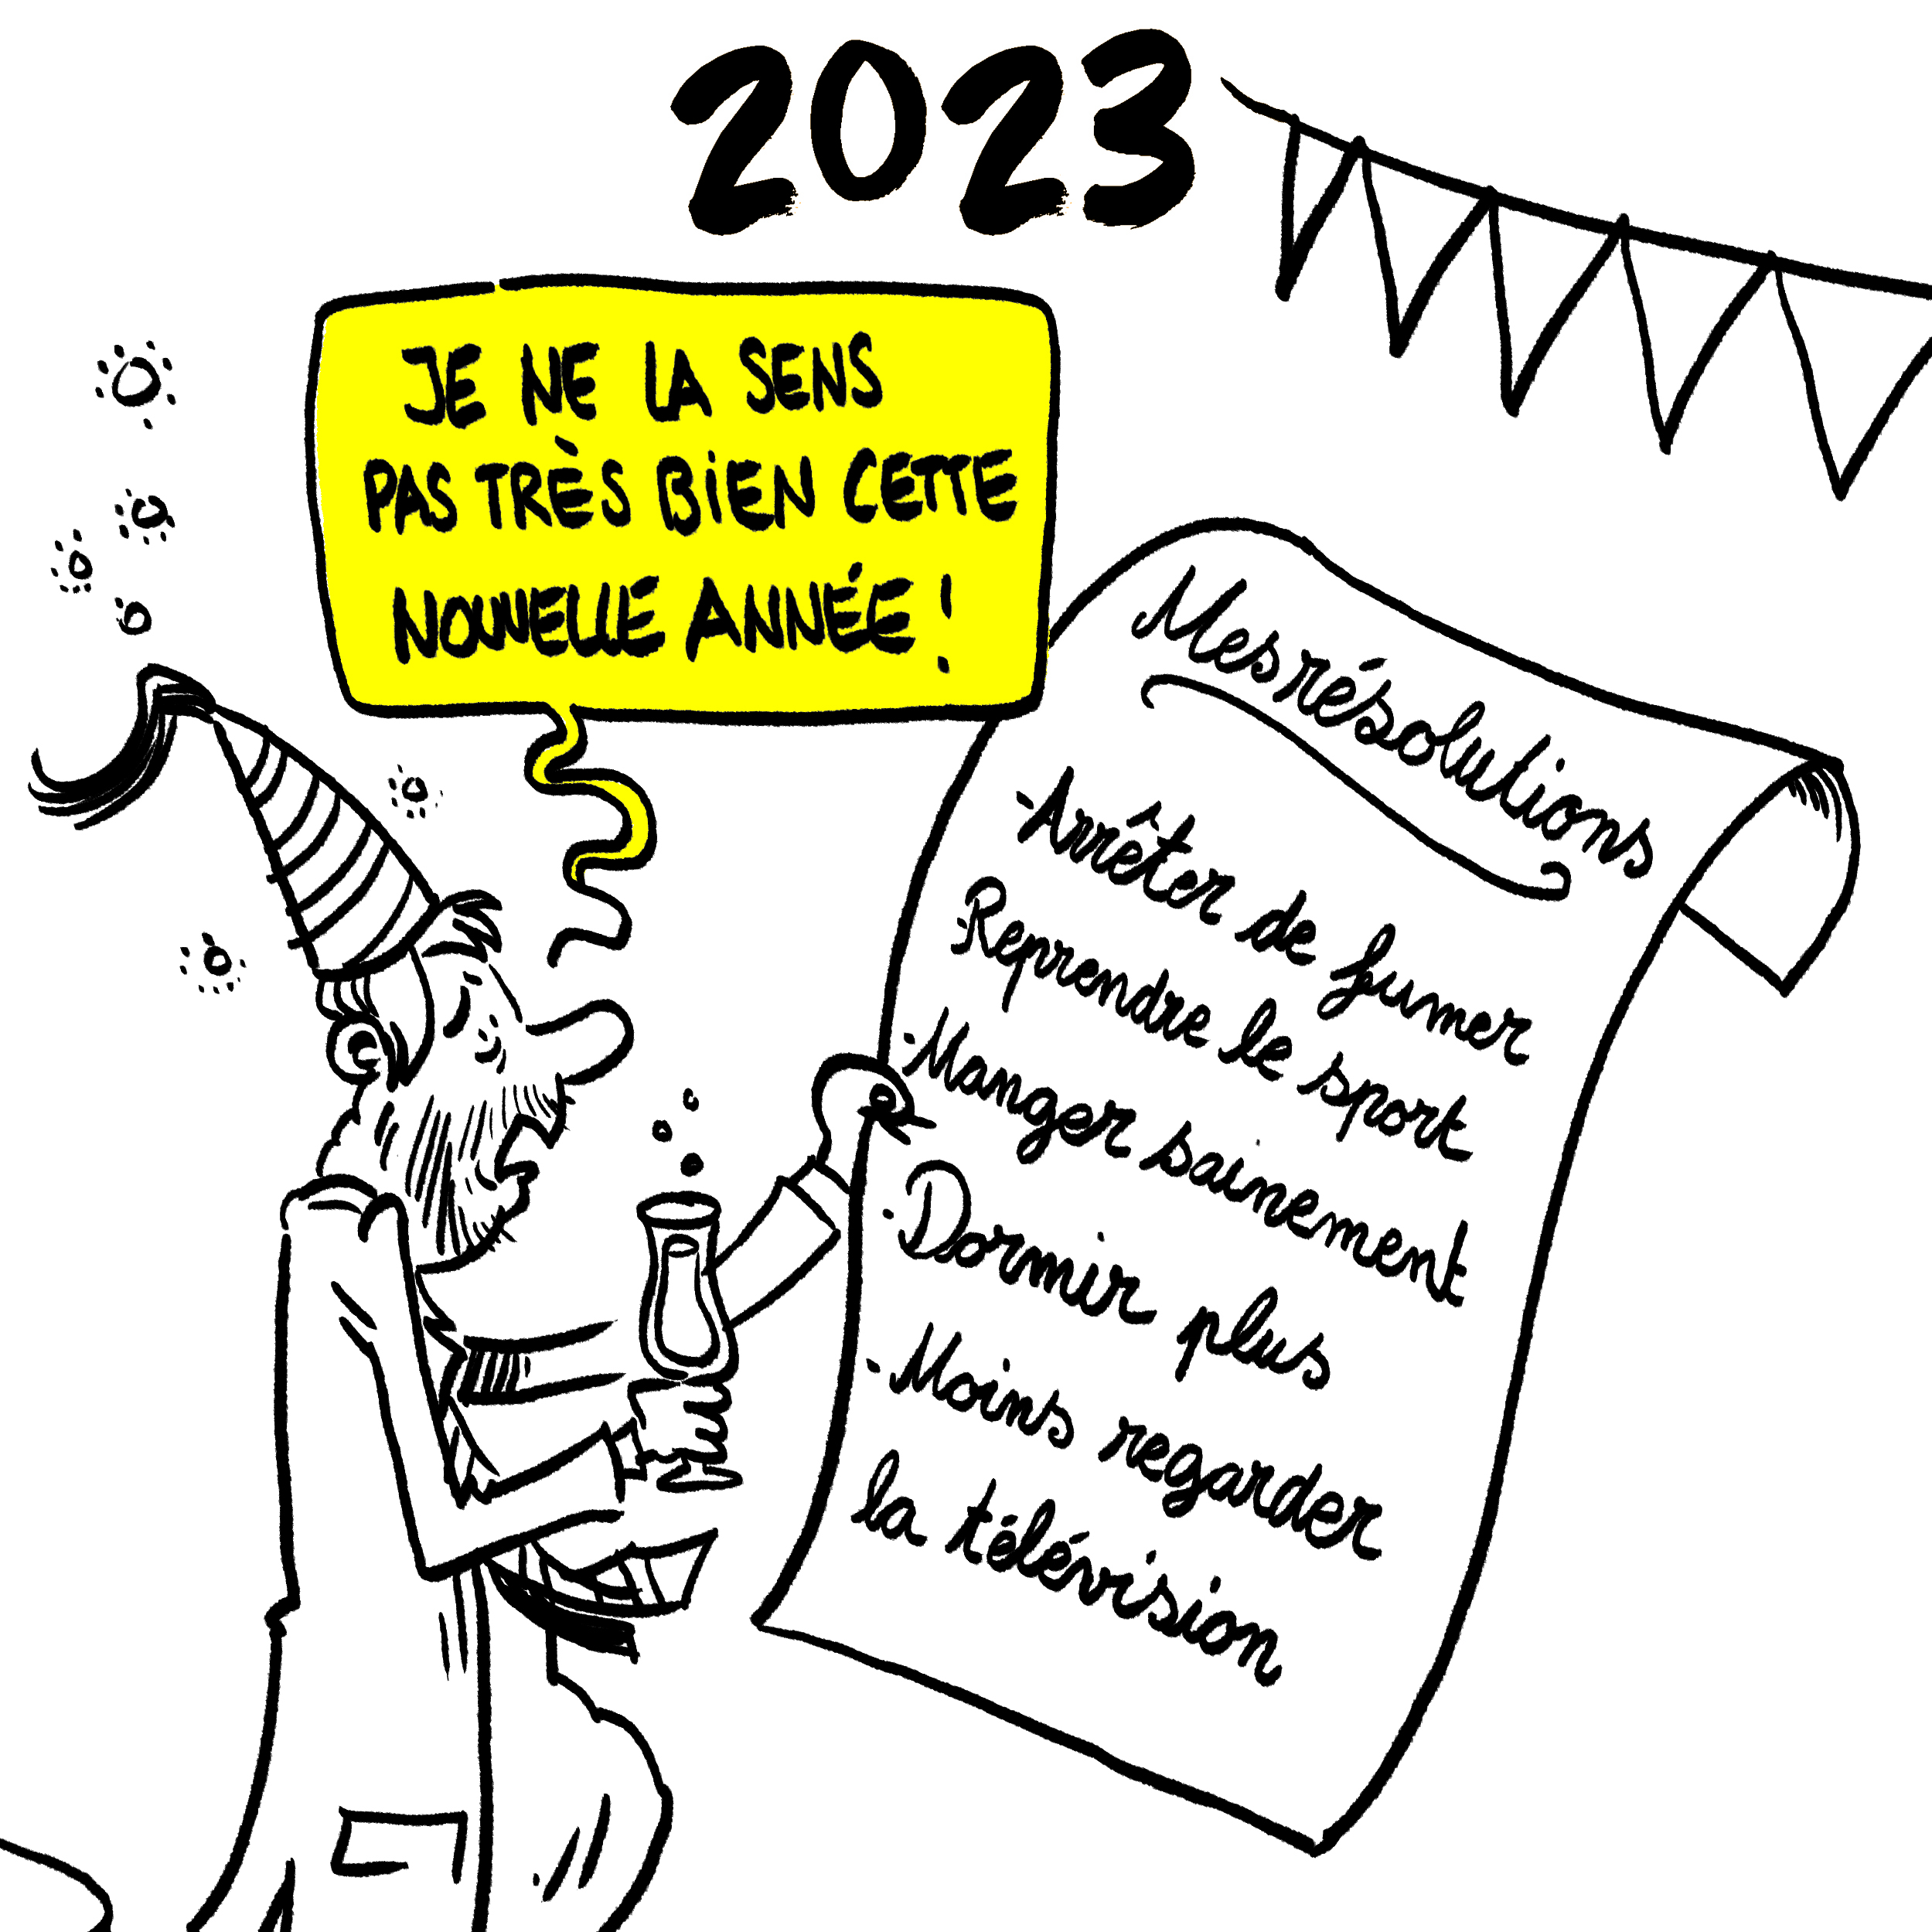 2023
JE NE LA SENS
PAS TRÈS BIEN CETTE
NOUVELLE ANNÉE !
Mes résolutions
·Arrêter de fumer
·Reprendre le sport
·Manger sainement
·Dormir plus
·Moins regarder
la télévision